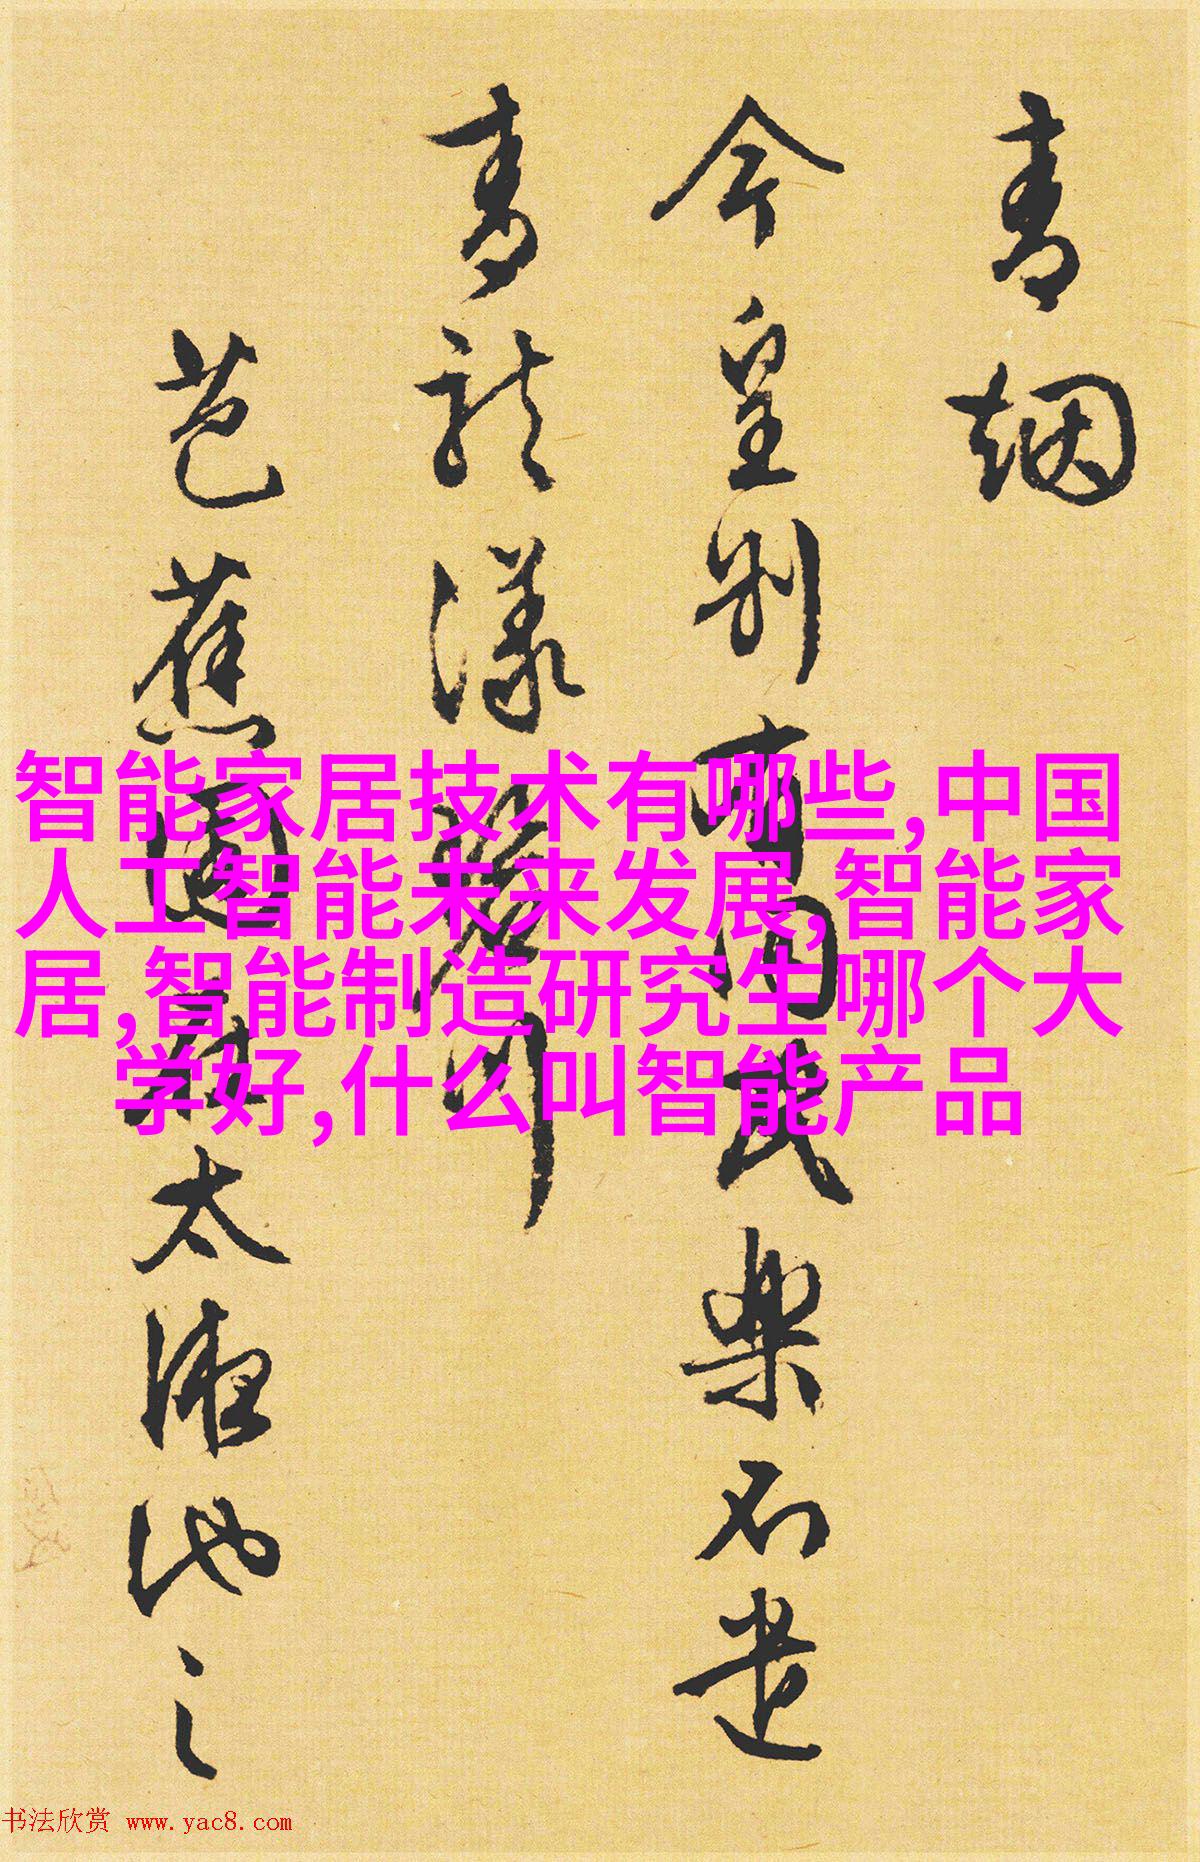 青烟
今皇别有调武乐石遗
青龙漾碧川
芭蕉园起太液池之
智能家居技术有哪些,中国
人工智能未来发展,智能家
居,智能制造研究生哪个大
学好,什么叫智能产品
书法欣赏 www.yac8.com